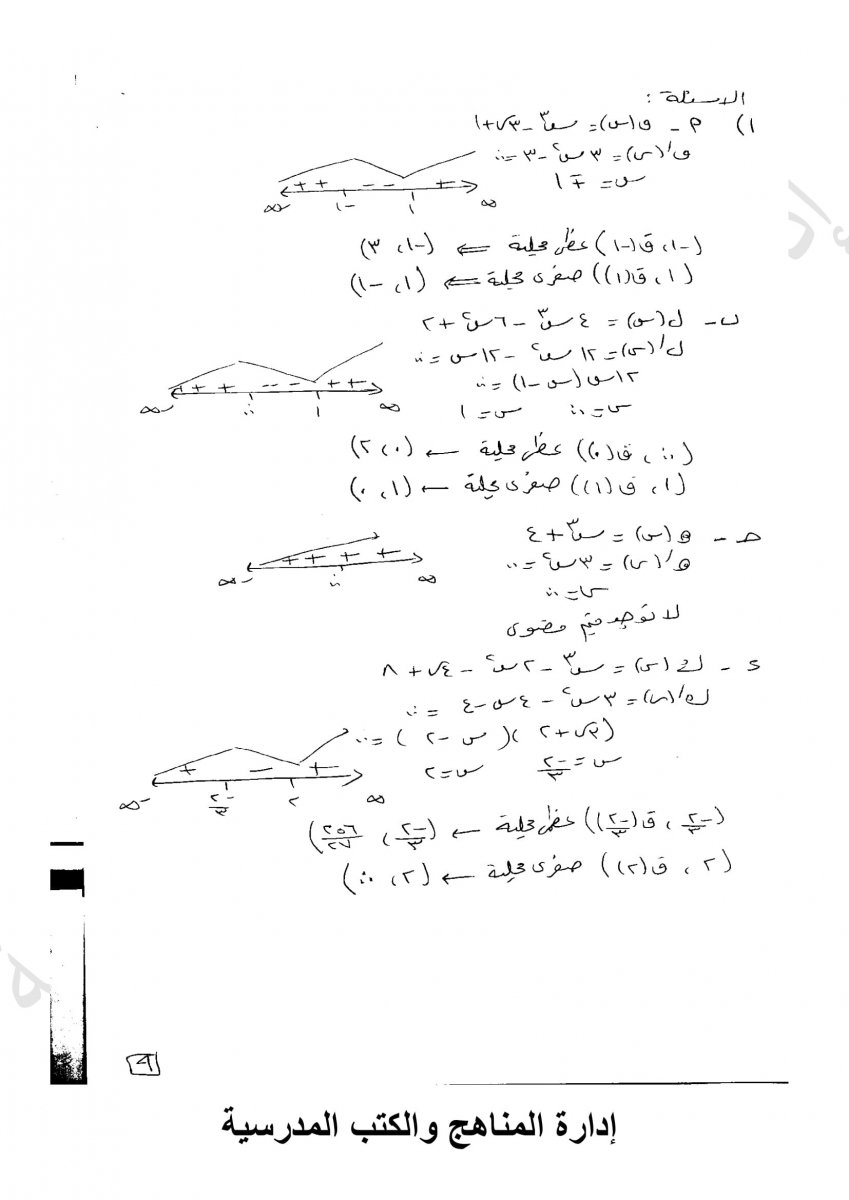 الاسئلة :
١) م - ق(س) = س٣ - ٣س + ١
ق/(س) = ٣س٢ - ٣ = ٠
س = ∓١
+ + - - +
∞- ١- ١ ∞
(-١، ق(-١)) عظمى محلية ⇐ (-١، ٣)
(١، ق(١)) صغرى محلية ⇐ (١، -١)
ب - ل(س) = ٤س٣ - ٦س٢ + ٢
ل/(س) = ١٢س٢ - ١٢س = ٠
١٢س(س - ١) = ٠
س = ٠ س = ١
+ + + - - - + +
∞- ٠ ١ ∞
(٠، ق(٠)) عظمى محلية ← (٠، ٢)
(١، ق(١)) صغرى محلية ← (١، ٠)
حـ - هـ(س) = س٣ + ٤
هـ/(س) = ٣س٢ = ٠
س = ٠
+ + + +
∞- ٠ ∞
لا توجد قيم قصوى
د - ك(س) = س٣ - ٢س٢ - ٤س + ٨
ك/(س) = ٣س٢ - ٤س - ٤ = ٠
(٣س + ٢)(س - ٢) = ٠
س = -٢/٣ س = ٢
+ - +
∞- -٢/٣ ٢ ∞
(-٢/٣، ق(-٢/٣)) عظمى محلية ← (-٢/٣، ٢٥٦/٢٧)
(٢، ق(٢)) صغرى محلية ← (٢، ٠)
إدارة المناهج والكتب المدرسية